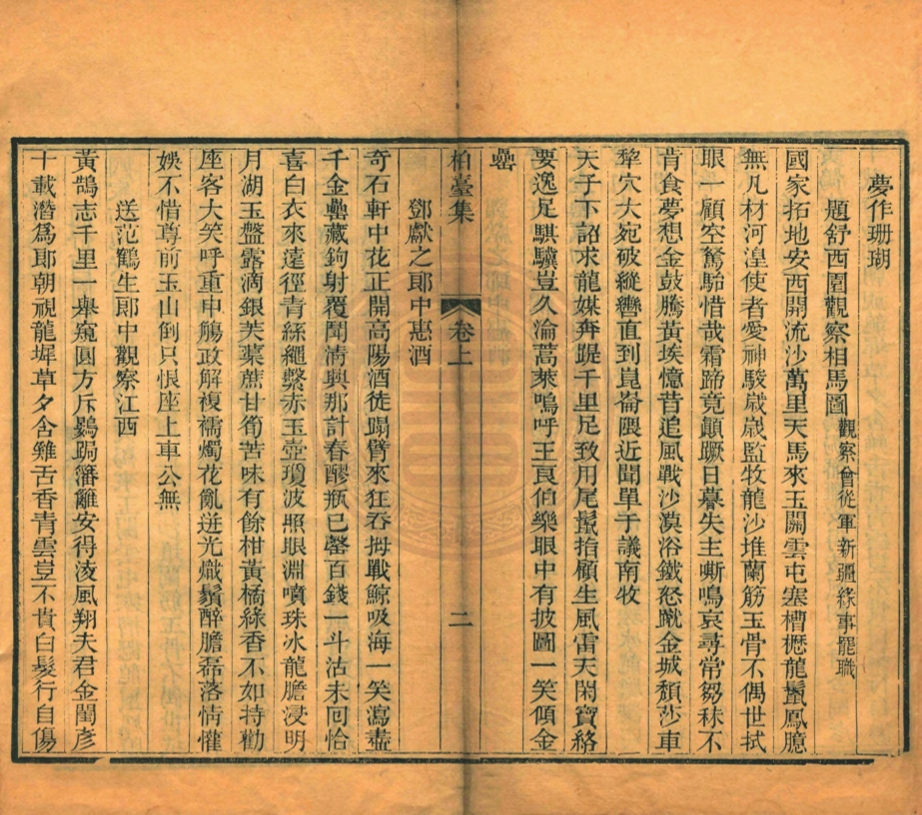 夢作珊瑚
題舒西園觀察相馬圖 觀察曾從軍新疆緣事罷職
國家拓地安西開流沙萬里天馬來玉關雲屯塞槽櫪龍鬣鳳臆
無凡材河湟使者愛神駿歲歲監牧龍沙堆蘭筋玉骨不偶世拭
眼一顧空駑駘惜哉霜蹄竟顛蹶日暮失主嘶鳴哀尋常芻秣不
肯食夢想金鼓騰黃埃憶昔追風戰沙漠浴鐵怒蹴金城頹莎車
犂穴大宛破縱轡直到崑崙隈近聞單于議南牧
天子下詔求龍媒奔踶千里足致用尾鬣指顧生風雷天閑寶絡
要逸足騏驥豈久淪蒿萊嗚呼王良伯樂眼中有披圖一笑傾金
罍
柏臺集 卷上 二
鄧獻之郎中惠酒
奇石軒中花正開高陽酒徒蹋臂來狂吞拇戰鯨吸海一笑瀉盡
千金罍藏鉤射覆鬧清興那計春醪瓶已罄百錢一斗沽未回恰
喜白衣來遠徑青絲繩繫赤玉壺瓊波照眼淵噴珠冰龍膽浸明
月湖玉盤露滴銀芙蕖蔗甘筍苦味有餘柑黃橘綠香不如持勸
座客大笑呼重申觴政解複襦燭花亂迸光熾鬚醉膽磊落情懽
娛不惜尊前玉山倒只恨座上車公無
送范鶴生郎中觀察江西
黃鵠志千里一舉窺圓方斥鷃跼籓籬安得淩風翔夫君金閨彥
十載潛爲郎朝視龍墀草夕含雞舌香青雲豈不貴白髮行自傷